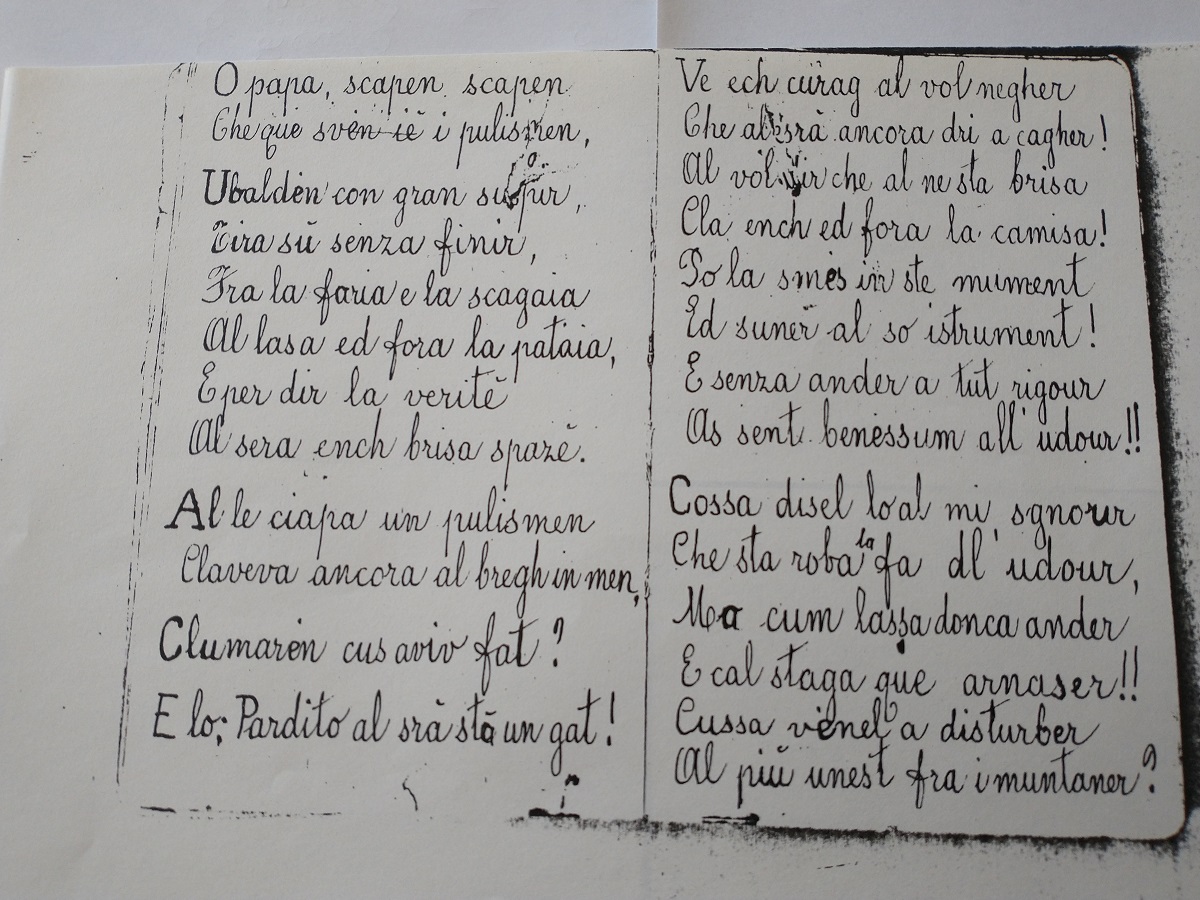 O papa, scapen scapen
Che que sven ié i pulismen,
Ubaldèn con gran suspir,
Tira sù senza finir,
Fra la faria e la scagaia
Al lasa ed fora la pataia,
E per dir la veritĕ
Al sera ench brisa spazĕ.
Al le ciapa un pulismen
Claveva ancora al bregh in men,
Clumarèn cus aviv fat?
E lo; Pardito al srà stà un gat!
Ve ech curag al vol negher
Che al srà ancora dri a cagher!
Al vol dir che al ne sta brisa
Cla ench ed fora la camisa!
Po la smès in ste mument
Ed sunĕr al so istrument!
E senza ander a tut rigour
As sent benessum all' udour!!
Cossa disel lo al mi sgnour
Che sta roba la fa dl' udour,
Ma cum lassa donca ander
E cal staga que arnaser!!
Cussa vènel a disturber
Al più unest fra i muntaner?